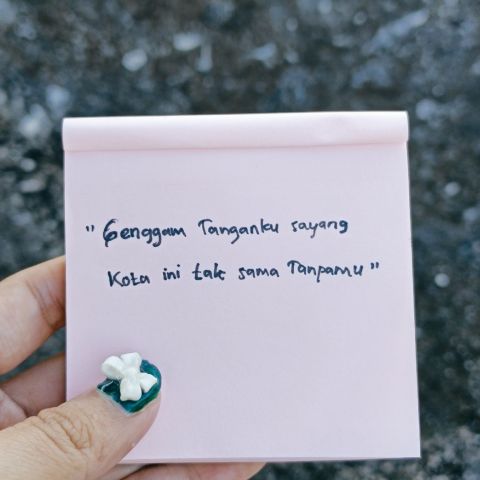 "Genggam Tanganku sayang
Kota ini tak sama Tanpamu"